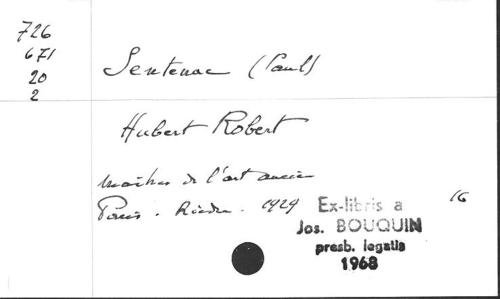 726
671
20
2
Sentenac (Paul)
Hubert Robert
Maîtres de l'art ancien
Paris. Rieder. 1929
16
Ex-libris a
Jos. BOUQUIN
presb. legatis
1968